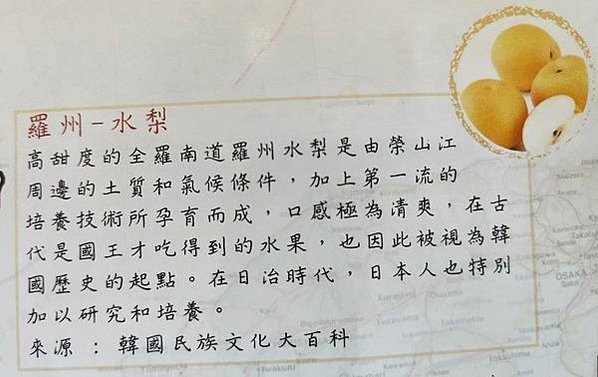 羅州－水梨
高甜度的全羅南道羅州水梨是由榮山江
周邊的土質和氣候條件，加上第一流的
培養技術所孕育而成，口感極為清爽，在古
代是國王才吃得到的水果，也因此被視為韓
國歷史的起點。在日治時代，日本人也特別
加以研究和培養。
來源：韓國民族文化大百科
OSAKA